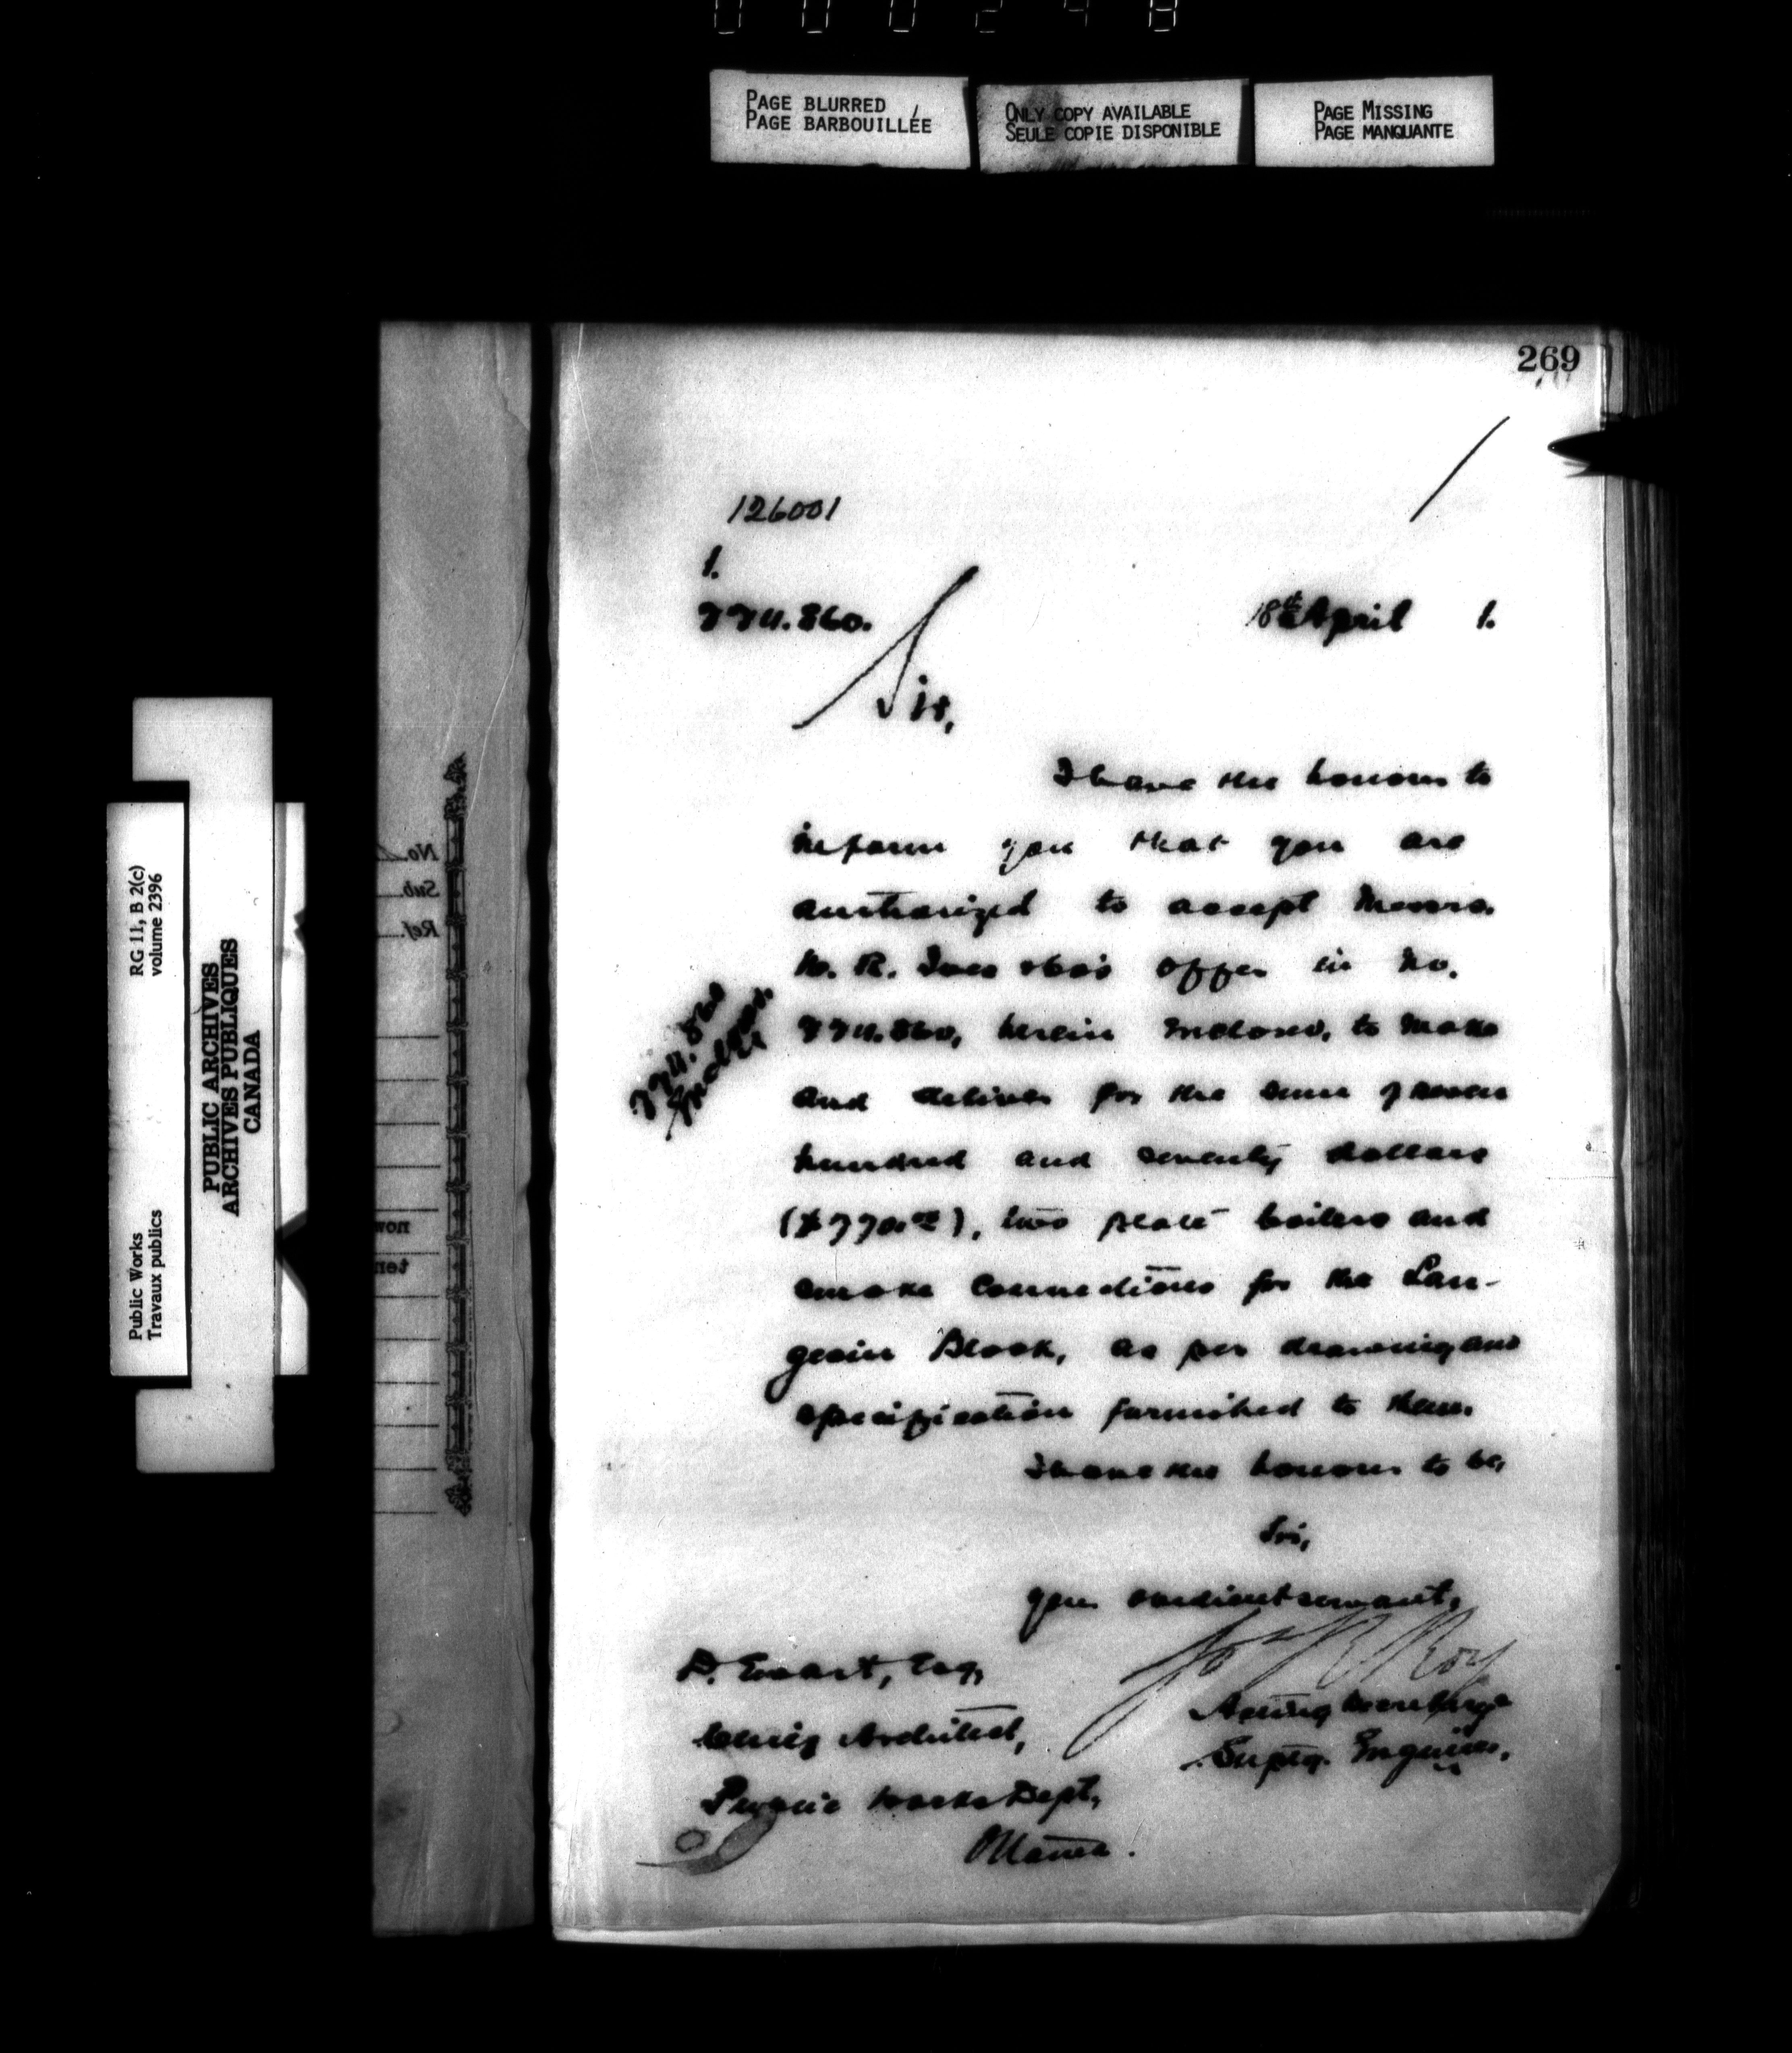 000248
PAGE BLURRED
PAGE BARBOUILLÉE
ONLY COPY AVAILABLE
SEULE COPIE DISPONIBLE
PAGE MISSING
PAGE MANQUANTE
RG 11, B 2(c)
volume 2396
PUBLIC ARCHIVES
ARCHIVES PUBLIQUES
CANADA
Public Works
Travaux publics
No.
Sub.
Ref.
269
126001
1.
774.860.
18th April 1.
Sir,
I have the honour to
inform you that you are
authorized to accept Messrs.
W. R. Ives &Co's offer in No.
774.860, herein enclosed, to make
and deliver for the sum of seven
hundred and seventy dollars
($770.00), two plate boilers and
smoke connections for the Lan-
gevin Block, as per drawing and
specification furnished to them.
774.860
I have the honour to be,
Sir,
your obedient servant,
Jos R Roy
Acting Secretary &
Suptg. Engineer,
D. Ewart, Esq,
Chief Architect,
Public Works Dept,
Ottawa.